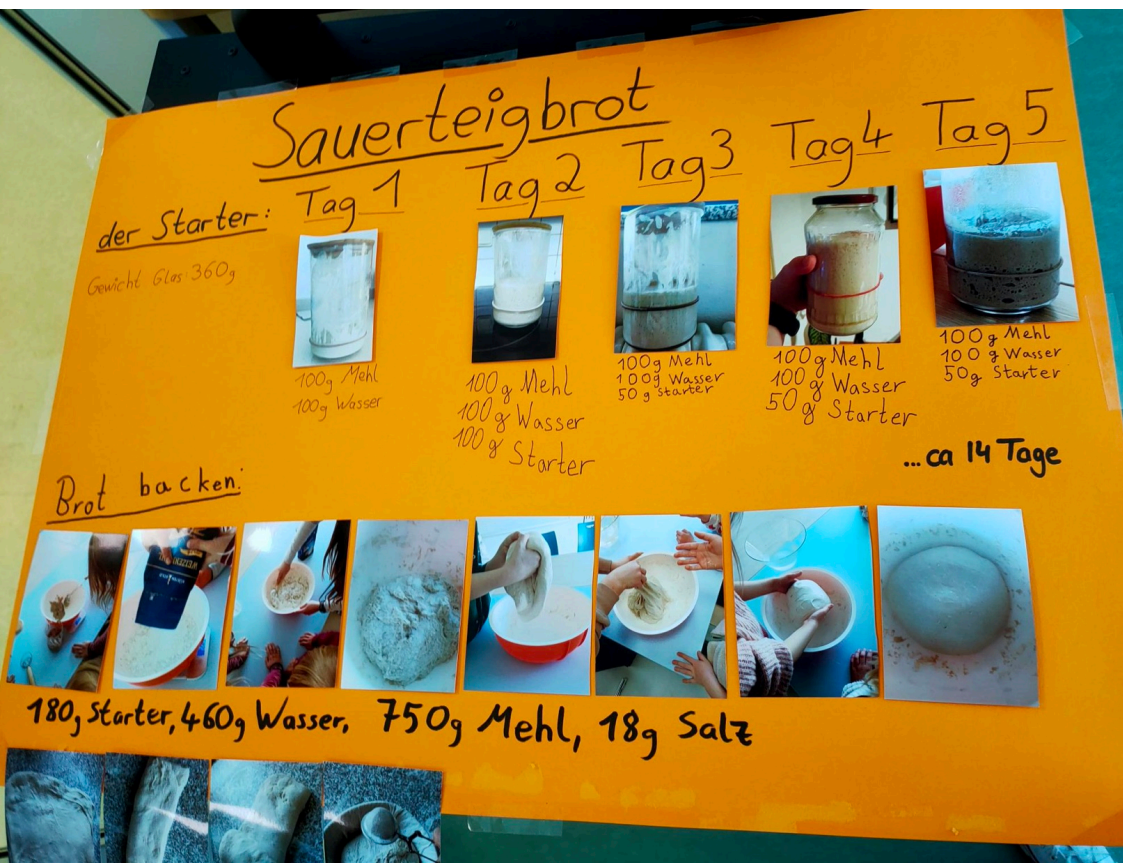 Sauerteigbrot
der Starter:
Gewicht Glas: 360g
Tag 1
100g Mehl
100g Wasser
Tag 2
100g Mehl
100g Wasser
100g Starter
Tag 3
100g Mehl
100g Wasser
50g Starter
Tag 4
100g Mehl
100g Wasser
50g Starter
Tag 5
100g Mehl
100g Wasser
50g Starter
...ca 14 Tage
Brot backen:
180g Starter, 460g Wasser, 750g Mehl, 18g Salz